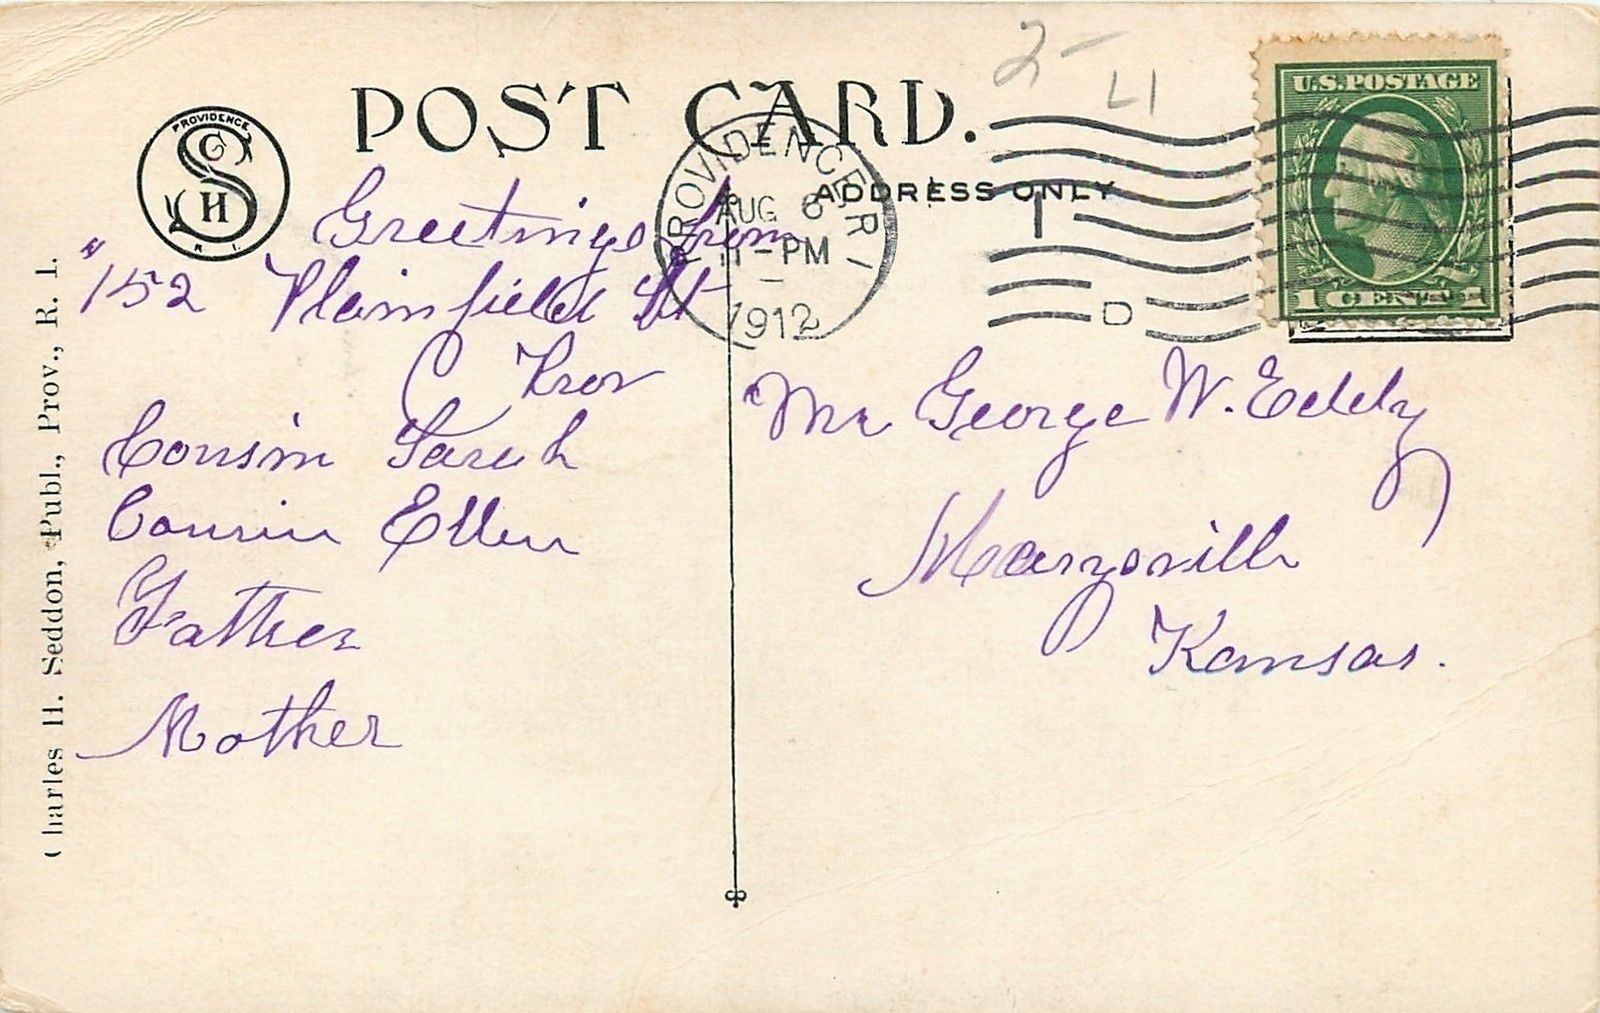 POST CARD.
ADDRESS ONLY
PROVIDENCE
S
C
H
R. I.
PROVIDENCE R I
AUG 6
11-PM
1912
1
D
U.S.POSTAGE
1 CENT 1
2-
Greetings from
"152 Plainfield St
Cousin Sarah
Cousin Ellen
Father
Mother
Mr George W. Eddy
Marysville
Kansas.
Charles H. Seddon, Publ., Prov., R. I.